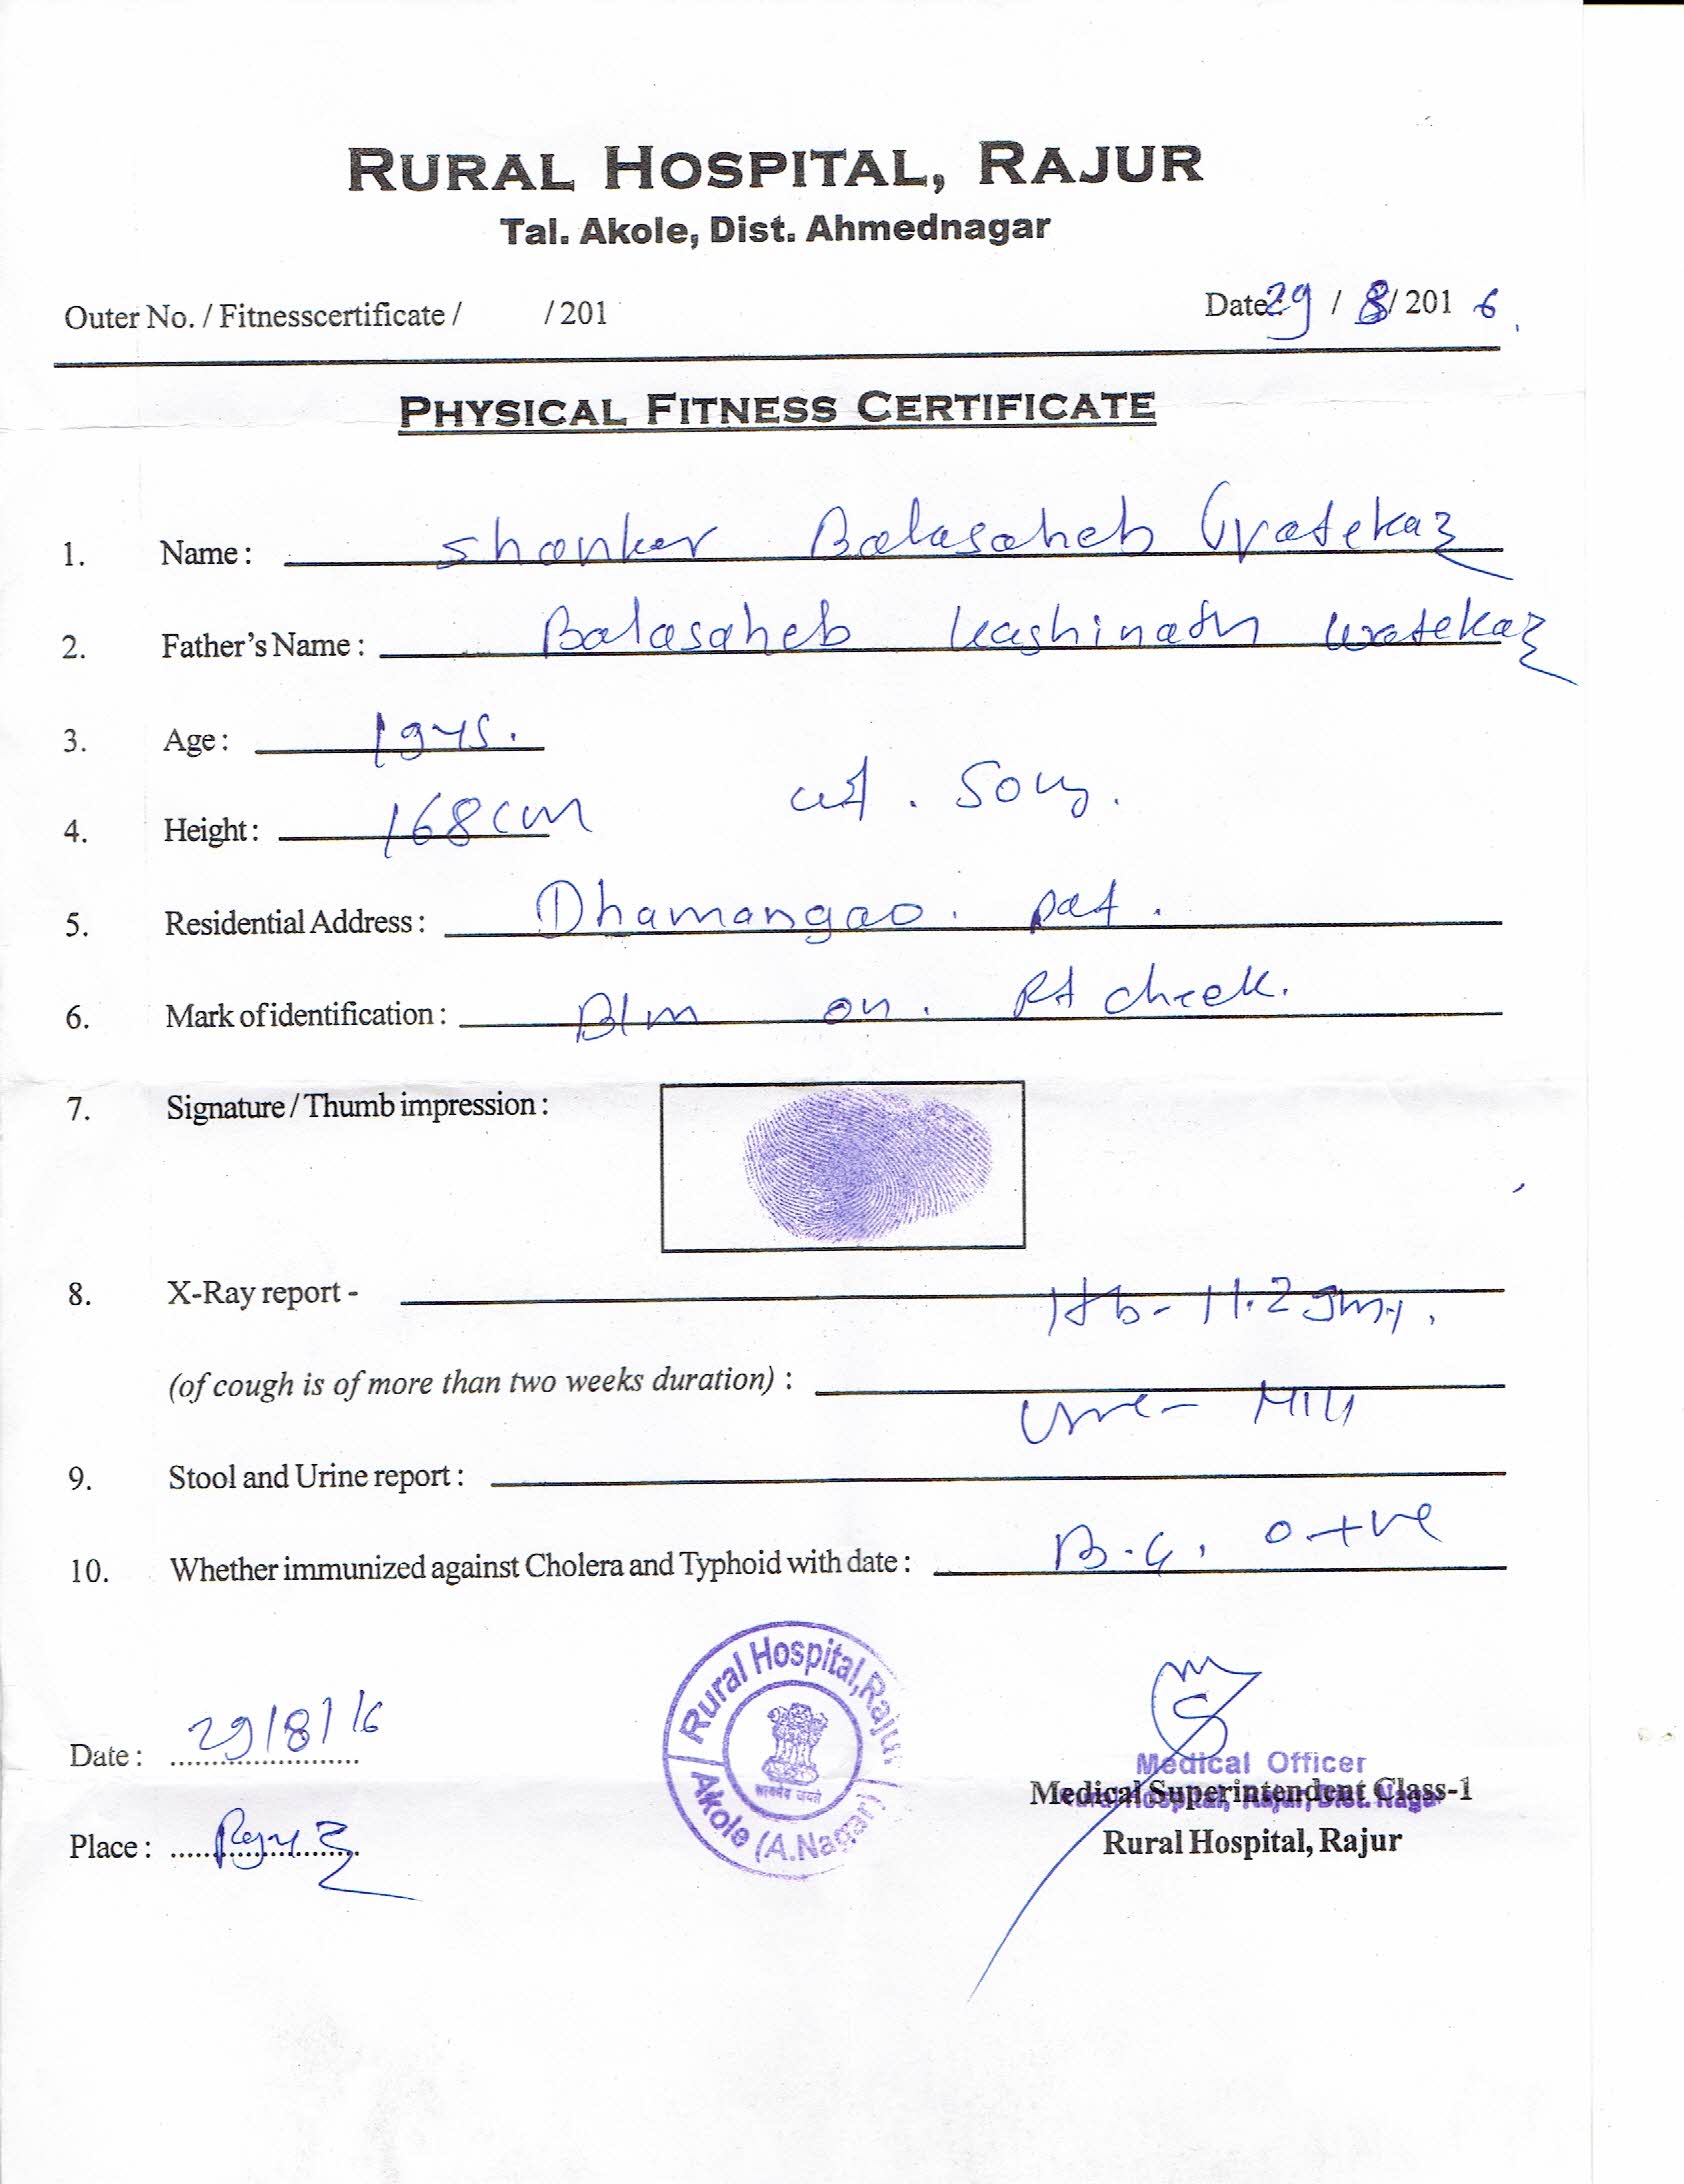 RURAL HOSPITAL, RAJUR
Tal. Akole, Dist. Ahmednagar
Outer No. / Fitnesscertificate / / 201 Date: 29 / 8 / 201 6
PHYSICAL FITNESS CERTIFICATE
1. Name : Shankar Balasaheb Watekar
2. Father's Name : Balasaheb Kashinath Watekar
3. Age : 19 ys.
4. Height : 168 cm wt. 50 kg.
5. Residential Address : Dhamangao. pat.
6. Mark of identification : Blm on. Rt cheek.
7. Signature / Thumb impression :
8. X-Ray report - Hb - 11.2 gm%.
(of cough is of more than two weeks duration) : Urine - Nil
9. Stool and Urine report :
10. Whether immunized against Cholera and Typhoid with date : B.G. O +ve
Rural Hospital, Rajur
Akole (A.Nagar)
सत्यमेव जयते
Date : 29/8/16
Medical Officer
Medical Superintendent Class-1
Rural Hospital, Rajur, Dist. Nagar
Place : Rajur
Rural Hospital, Rajur